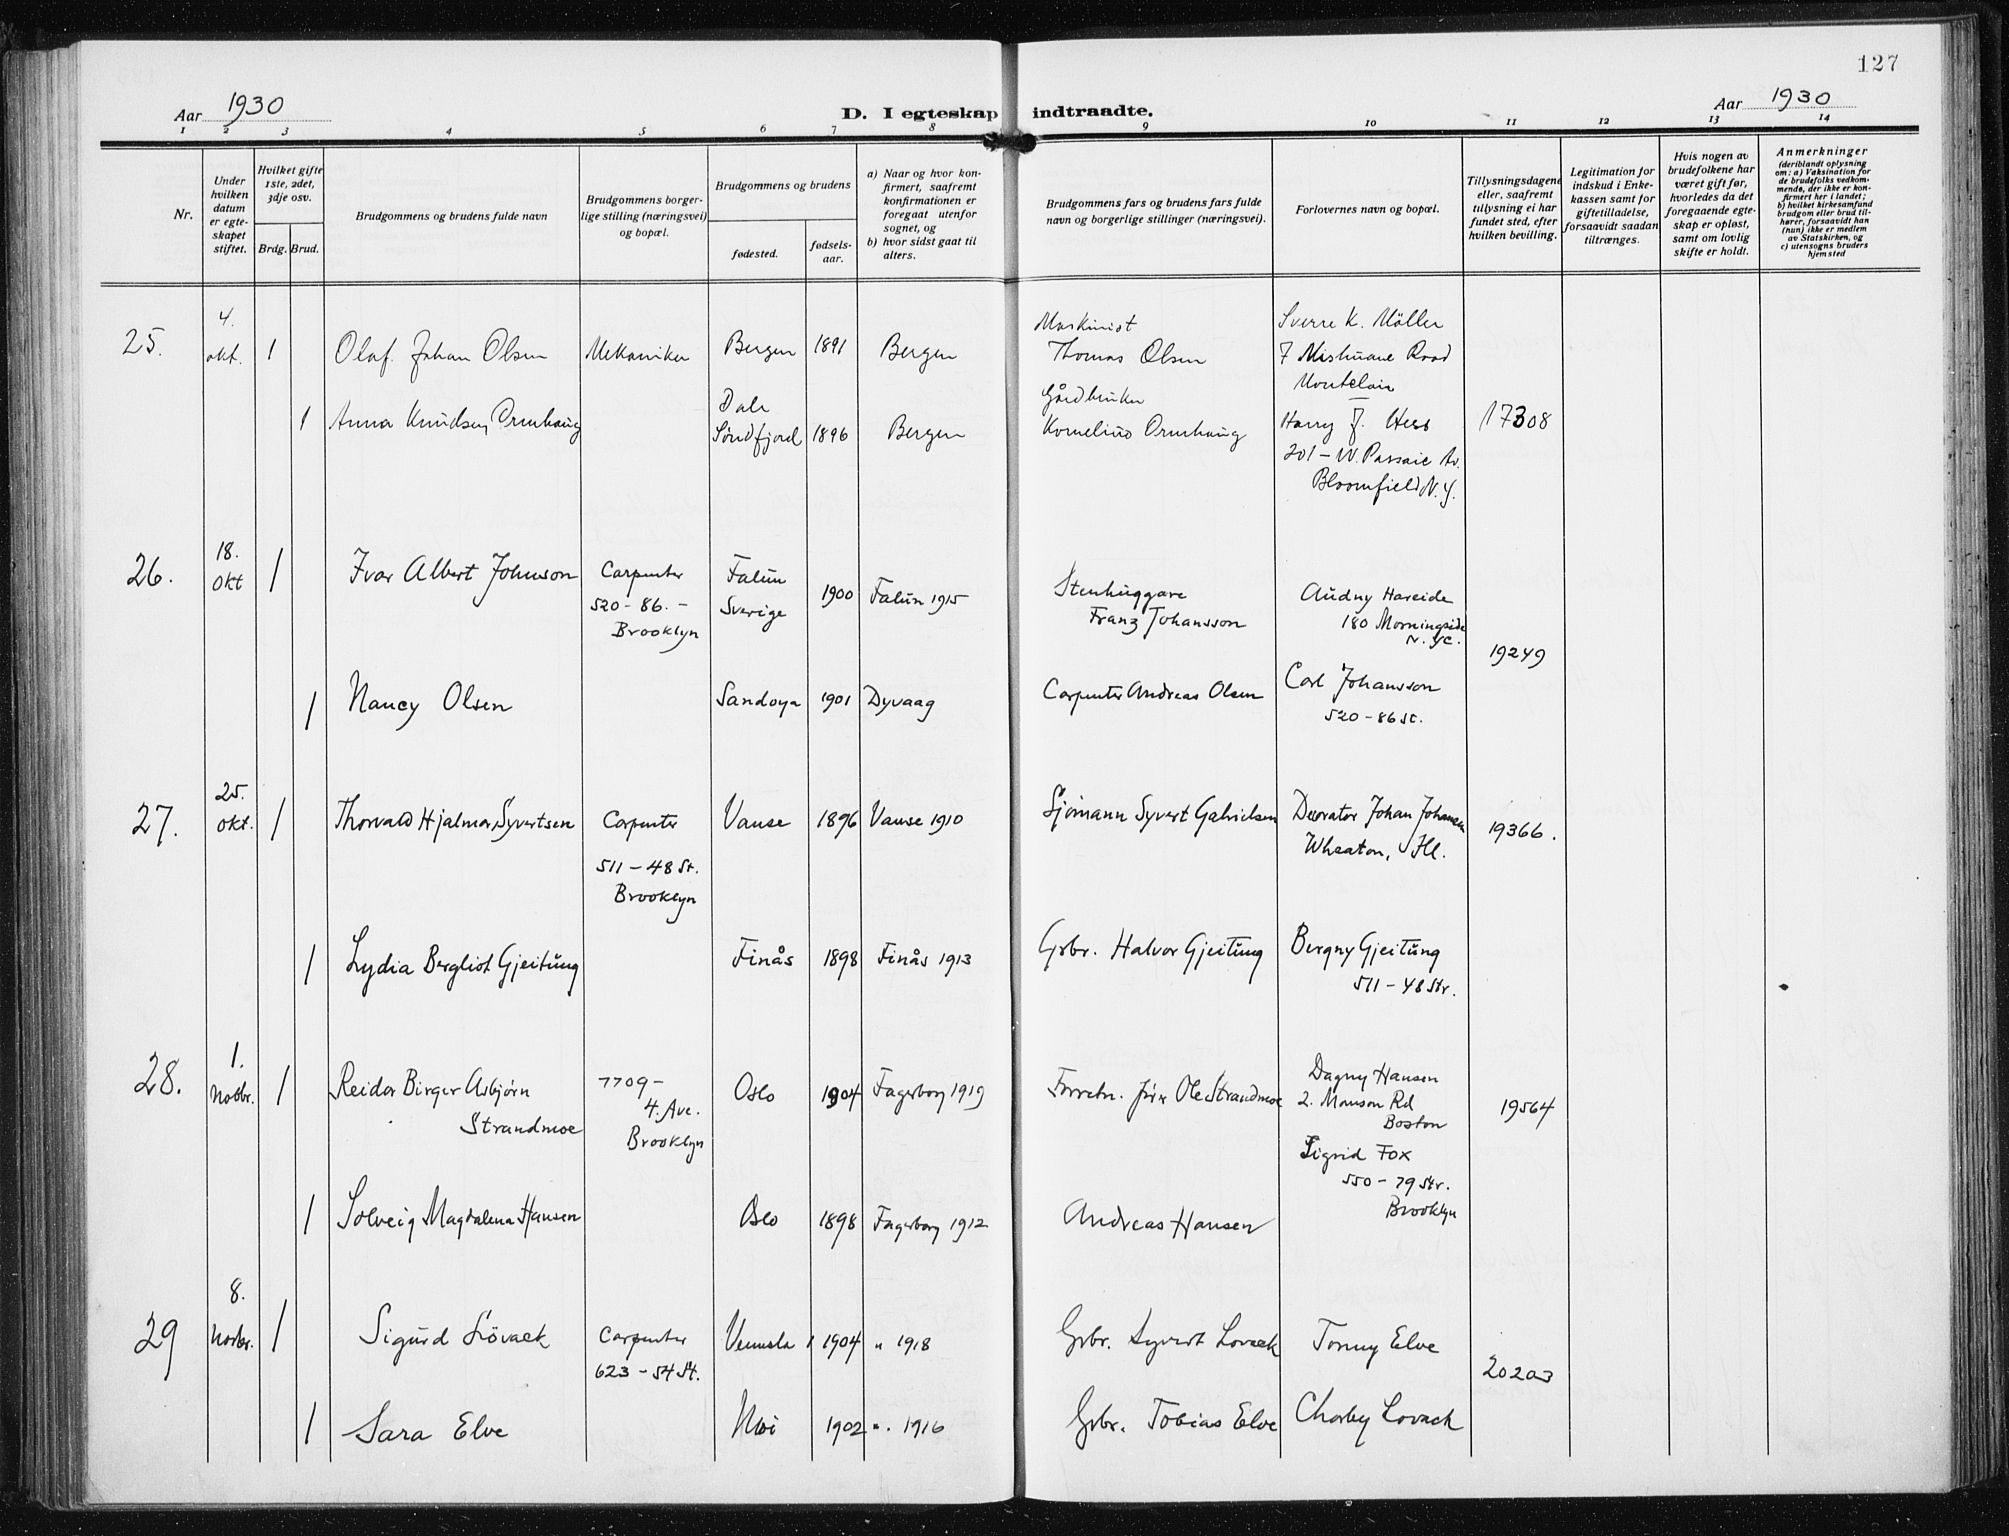 127
Aar 1930
D. I egteskap indtraadte.
Aar 1930
1 2 3 4 5 6 7 8 9 10 11 12 13 14
Nr.
Under hvilken datum er egteskapet stiftet.
Hvilket gifte 1ste, 2det, 3dje osv.
Brdg. Brud.
Brudgommens og brudens fulde navn
Brudgommens borgerlige stilling (næringsvei) og bopæl.
Brudgommens og brudens
fødested.
fødselsaar.
a) Naar og hvor konfirmert, saafremt konfirmationen er foregaat utenfor sognet, og
b) hvor sidst gaat til alters.
Brudgommens fars og brudens fars fulde navn og borgerlige stillinger (næringsvei).
Forlovernes navn og bopæl.
Tillysningsdagene eller, saafremt tillysning ei har fundet sted, efter hvilken bevilling.
Legitimation for indskud i Enkekassen samt for giftetilladelse, forsaavidt saadan tiltrænges.
Hvis nogen av brudefolkene har været gift før, hvorledes da det foregaaende egteskap er opløst, samt om lovlig skifte er holdt.
Anmerkninger
(deriblandt oplysning om: a) Vaksination for de brudefolks vedkommende, der ikke er konfirmert her i landet; b) hvilket kirkesamfund brudgom eller brud tilhører, forsaavidt han (hun) ikke er medlem av Statskirken, og c) utensogns bruders hjemsted
25. 4. okt. 1 Olaf Johan Olsen Mekaniker Bergen 1891 Bergen Maskinist Thomas Olsen Sverre K. Möller
7 Road
Montclair
1 Anna Knudsen Ormhaug Dale Søndfjord 1896 Bergen Gårdbruker Kornelius Ormhaug Harry F. Hess 17308
201 - W. Passaic Av.
Bloomfield N.Y.
26. 18. Okt 1 Ivar Albert Johnson Carpenter Falun Sverige 1900 Falun 1915 Stenhuggare Franz Johansson Audny Hareide
520-86.- Brooklyn 180 Morningside N.Y.C.
19249
1 Nancy Olsen Sandøya 1901 Dyvaag Carpenter Andreas Olsen Carl Johansson
520-86 St.
27. 25. okt. 1 Thorvald Hjalmar Syvertsen Carpenter Vanse 1896 Vanse 1910 Sjømann Syvert Gabrielsen Decorator Johan Johansen 19366.
Wheaton, Ill.
511-48 St.
Brooklyn
1 Lydia Bergliot Gjeitung Finås 1898 Finås 1913 Grbr. Halvor Gjeitung Bergny Gjeitung
511-48 Str.
28. 1. Novbr. 1 Reidar Birger Asbjørn Strandmoe 7709- 4. Ave. Brooklyn Oslo 1904 Fagerborg 1919 Ole Strandmoe Dagny Hansen
2. Monson Rd
Boston
19564
Sigrid Fox
550-79 Str.
Brooklyn
1 Solveig Magdalena Hansen Oslo 1898 Fagerborg 1912 Andreas Hansen
29 8. Novbr. 1 Sigurd Lövaek Carpenter Vennesla 1904 " 1918 Grbr. Syvert Lovaek Tonny Elve
623-54 St. 20203
1 Sara Elve Moi 1902 ". 1916 Grbr. Tobias Elve Charley Lovaek